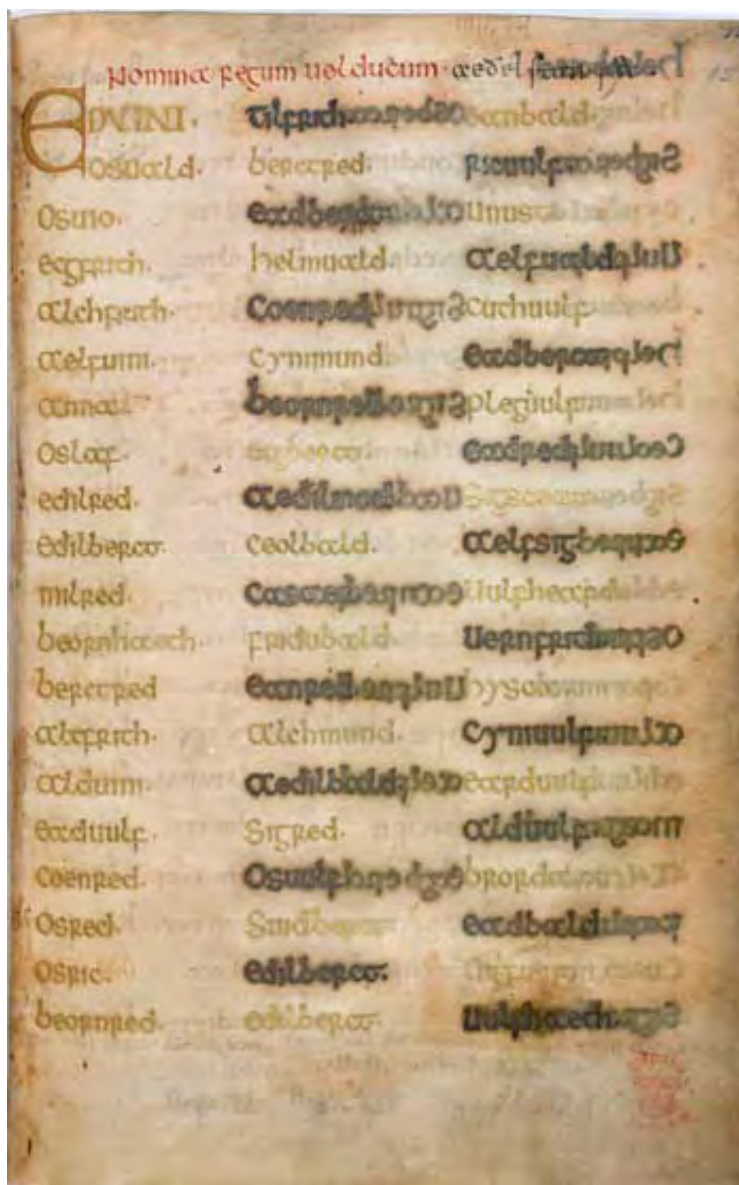 Nomina regum uel ducum
EDUINI·
osuald·
osuio·
ecgfrith·
alchfrith·
aelfuini
anna
oslaf·
edilred·
edilberct·
milred·
beornhaeth·
berctred
altfrith·
alduini·
eaduulf·
coenred·
osred·
osric·
beornred·
tilfrith
berctred·
eadberct
helmuald·
coenred
cynimund
beornred
ceolbald·
fridubald·
eanred
alchmund·
aedilbald
sigred·
osuulf
suidberct
edilberct·
edilberct·
eanbald·
unust
cuthuulf
eadberct
pleguulf
eadred
aelfsig
uulfheard
uernfrith
cynuulf
earduulf
alduulf
brord
eadbald
uulfhaeth